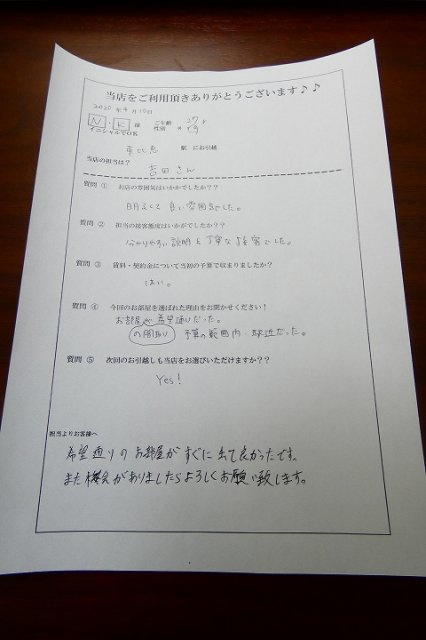 当店をご利用頂きありがとうございます♪♪
2020年9月10日
N.K 様 ご年齢 27才
イニシャルでOK 性別
東比恵 駅 にお引越
当店の担当は?
吉田さん
質問 ① お店の雰囲気はいかがでしたか??
明るくて良い雰囲気でした。
質問 ② 担当の接客態度はいかがでしたか??
分かりやすい説明と丁寧な接客でした。
質問 ③ 賃料・契約金について当初の予算で収まりましたか?
はい。
質問 ④ 今回のお部屋を選ばれた理由をお聞かせください!
お部屋が希望通りだった。
の間取り 予算の範囲内・駅近だった。
質問 ⑤ 次回のお引越しも当店をお選びいただけますか??
Yes!
担当よりお客様へ
希望通りのお部屋がすぐに出て良かったです。
また機会がありましたらよろしくお願い致します。